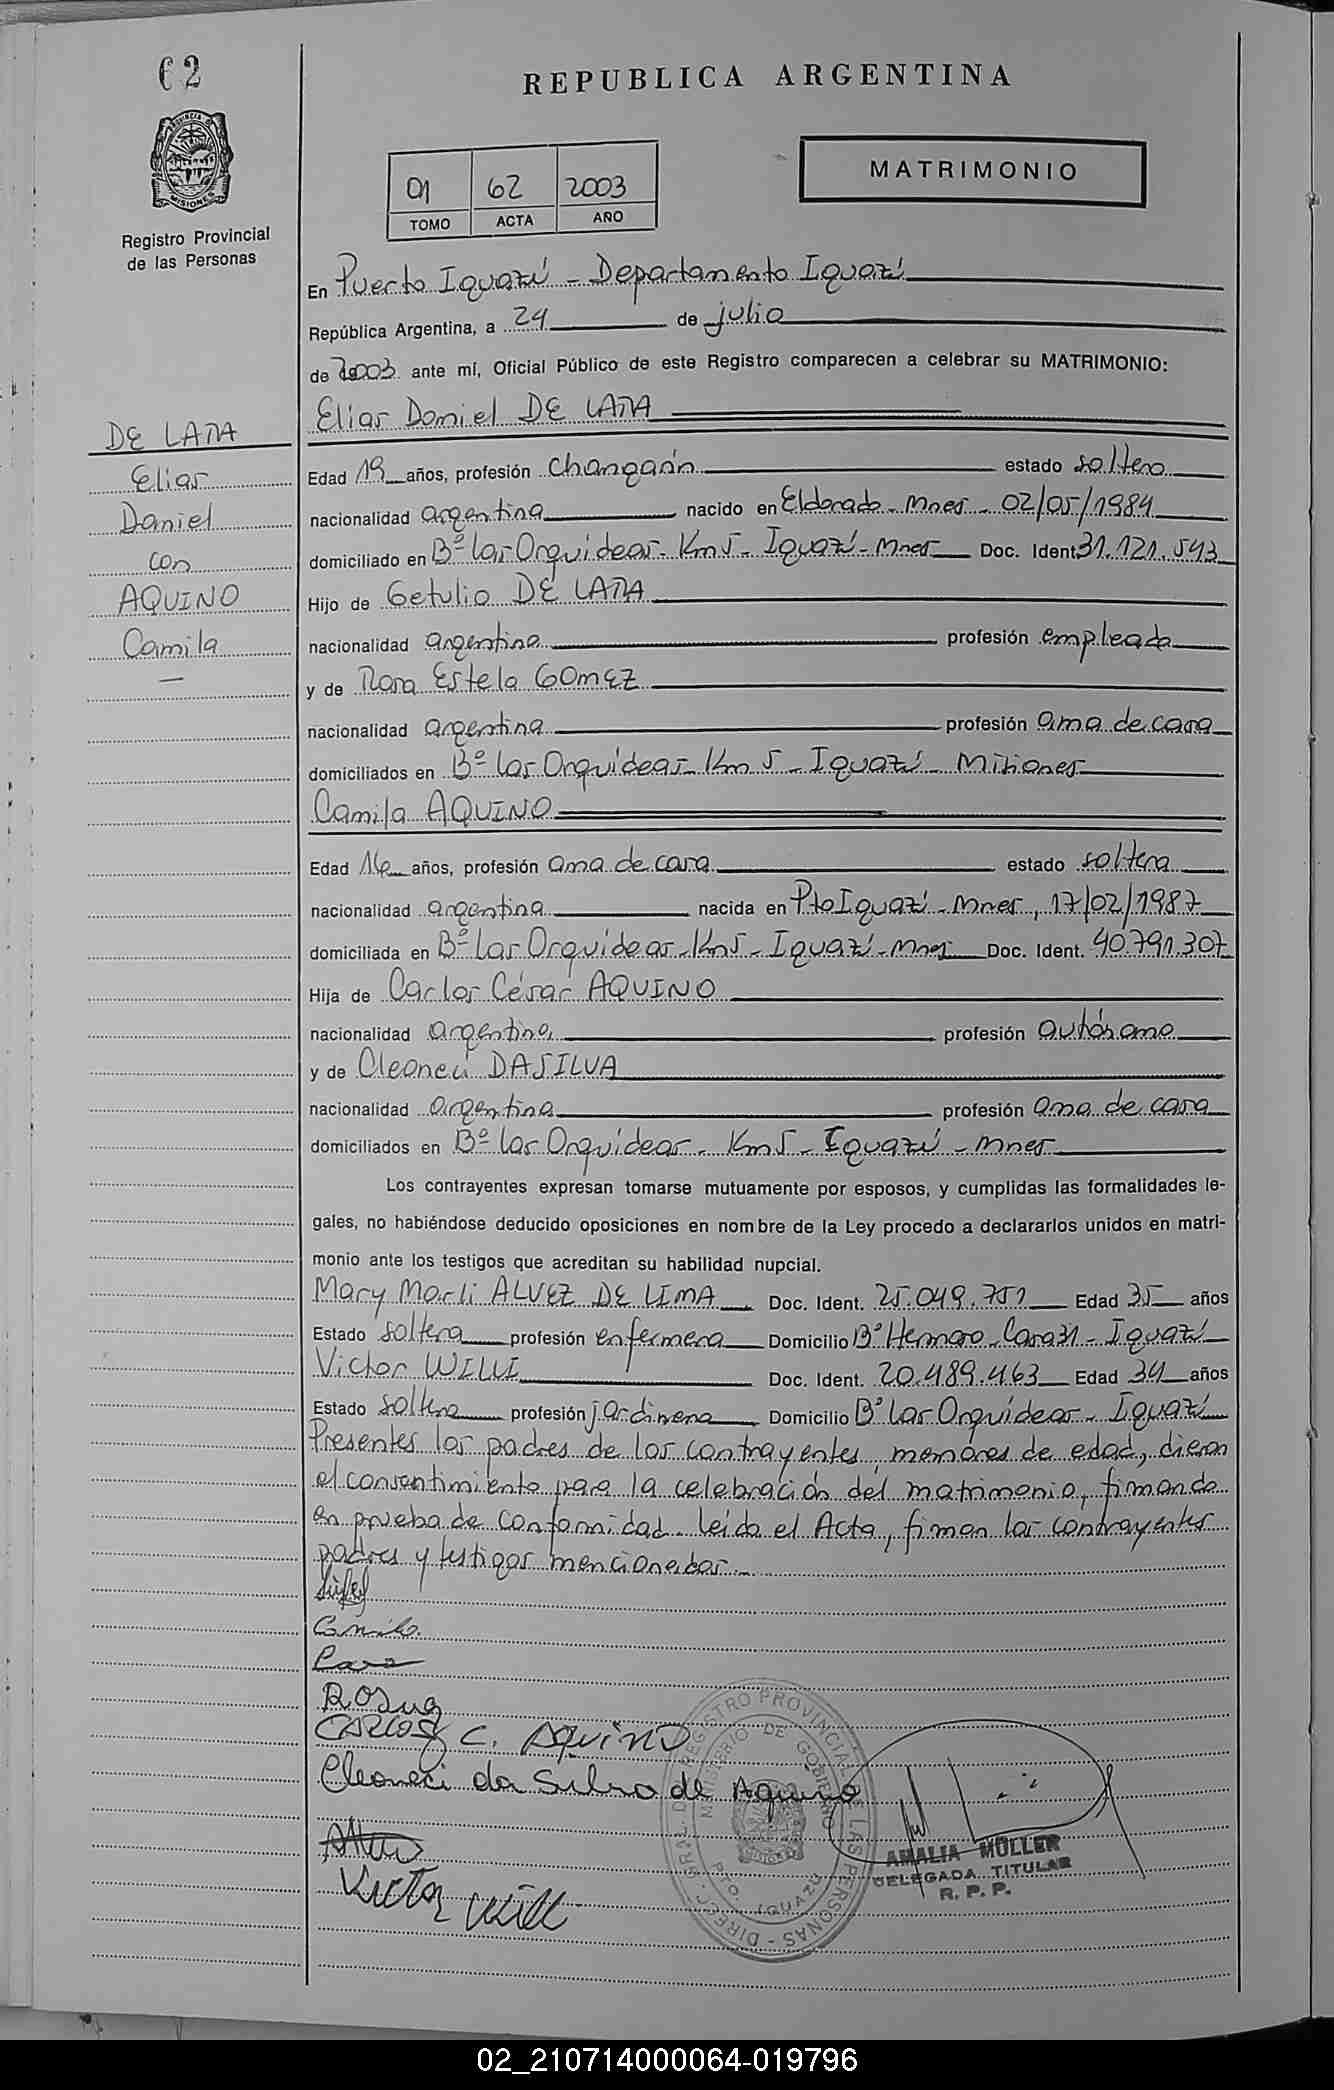 62
REPUBLICA ARGENTINA
PROVINCIA DE MISIONES
Registro Provincial
de las Personas
01 62 2003
TOMO ACTA AÑO
MATRIMONIO
En Puerto Iguazú - Departamento Iguazú
República Argentina, a 24 de julio
de 2003 ante mí, Oficial Público de este Registro comparecen a celebrar su MATRIMONIO:
Elias Daniel DE LARA
DE LARA
Elias
Daniel
con
AQUINO
Camila
—
Edad 19 años, profesión changarín estado soltero
nacionalidad argentina nacido en Eldorado - Mnes - 02/05/1984
domiciliado en Bº Las Orquídeas - Km 5 - Iguazú - Mnes Doc. Ident. 31.121.543
Hijo de Getulio DE LARA
nacionalidad argentina profesión empleado
y de Rosa Estela GOMEZ
nacionalidad argentina profesión ama de casa
domiciliados en Bº Las Orquídeas - Km 5 - Iguazú - Misiones
Camila AQUINO
Edad 16 años, profesión ama de casa estado soltera
nacionalidad argentina nacida en Pto Iguazú - Mnes, 17/02/1987
domiciliada en Bº Las Orquídeas - Km 5 - Iguazú - Mnes Doc. Ident. 40.791.307
Hija de Carlos César AQUINO
nacionalidad argentina profesión autónomo
y de Cleoneci DA SILVA
nacionalidad argentina profesión ama de casa
domiciliados en Bº Las Orquídeas - Km 5 - Iguazú - Mnes
Los contrayentes expresan tomarse mutuamente por esposos, y cumplidas las formalidades le-
gales, no habiéndose deducido oposiciones en nombre de la Ley procedo a declararlos unidos en matri-
monio ante los testigos que acreditan su habilidad nupcial.
Mary Marli ALVEZ DE LIMA Doc. Ident. 25.049.751 Edad 35 años
Estado soltera profesión enfermera Domicilio Bº Hermoso - Casa 31 - Iguazú
Victor WILLI Doc. Ident. 20.489.463 Edad 34 años
Estado soltero profesión jardinero Domicilio Bº Las Orquídeas - Iguazú
Presentes los padres de los contrayentes, menores de edad, dieron
el consentimiento para la celebración del matrimonio, firmando
en prueba de conformidad. Leída el Acta, firman los contrayentes
padres y testigos mencionados.-
Camila
CARLOS C. AQUINO
Cleoneci da Silva de Aquino
Victor Willi
DIRECC. GRAL. DEL REGISTRO PROVINCIAL DE LAS PERSONAS
MINISTERIO DE GOBIERNO
PTO. IGUAZU
AMALIA MÜLLER
DELEGADA TITULAR
R. P. P.
02_210714000064-019796